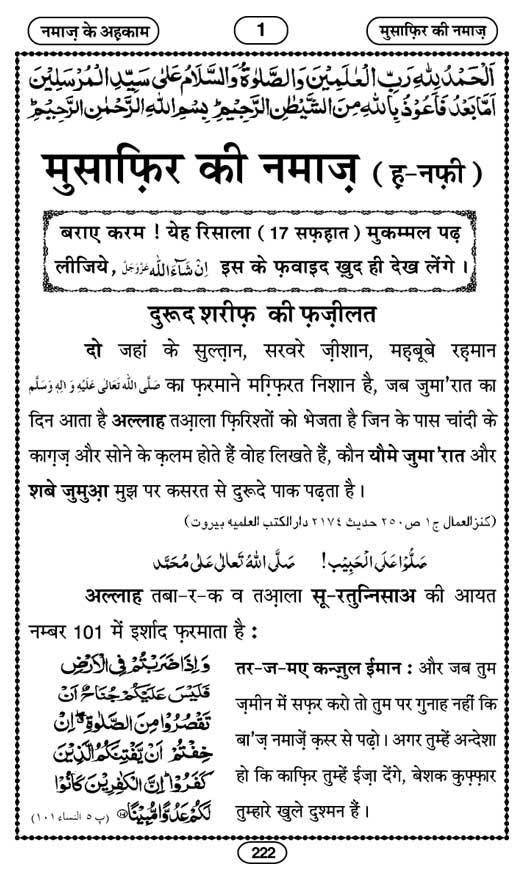 नमाज़ के अह़काम
1
मुसाफ़िर की नमाज़
اَلْحَمْدُ لِلّٰہِ رَبِّ الْعٰلَمِیْنَ وَالصَّلٰوۃُ وَالسَّلَامُ عَلٰی سَیِّدِ الْمُرْسَلِیْنَ
اَمَّا بَعْدُ فَاَعُوْذُ بِاللّٰہِ مِنَ الشَّیْطٰنِ الرَّجِیْمِ ؕ بِسْمِ اللّٰہِ الرَّحْمٰنِ الرَّحِیْمِ ؕ
मुसाफ़िर की नमाज़ ( ह़-नफ़ी )
बराए करम ! येह रिसाला ( 17 सफ़ह़ात ) मुकम्मल पढ़
लीजिये, اِنْ شَآءَاللّٰہ عَزَّوَجَلَّ इस के फ़वाइद ख़ुद ही देख लेंगे ।
दुरूद शरीफ़ की फ़ज़ीलत
दो जहां के सुल्त़ान, सरवरे ज़ीशान, मह़बूबे रह़मान
صَلَّی اللّٰہُ تَعَالٰی عَلَیْہِ وَاٰلِہٖ وَسَلَّم का फ़रमाने मग़्फ़िरत निशान है, जब जुमा'रात का
दिन आता है अल्लाह तआ़ला फ़िरिश्तों को भेजता है जिन के पास चांदी के
काग़ज़ और सोने के क़लम होते हैं वोह लिखते हैं, कौन यौमे जुमा'रात और
शबे जुमुआ़ मुझ पर कसरत से दुरूदे पाक पढ़ता है ।
(کنزالعمال ج۱ ص۲۵۰ حدیث ۲۱۷۴ دارالکتب العلمیه بیروت)
صَلُّوْا عَلَی الْحَبِیْب! صَلَّی اللّٰہُ تَعَالٰی عَلٰی مُحَمَّد
अल्लाह तबा-र-क व तआ़ला सू-रतुन्निसाअ की आयत
नम्बर 101 में इर्शाद फ़रमाता है :
وَ اِذَا ضَرَبْتُمْ فِی الْاَرْضِ
فَلَیْسَ عَلَیْكُمْ جُنَاحٌ اَنْ
تَقْصُرُوْا مِنَ الصَّلٰوةِ ۖ اِنْ
خِفْتُمْ اَنْ یَّفْتِنَكُمُ الَّذِیْنَ
كَفَرُوْا ؕ اِنَّ الْكٰفِرِیْنَ كَانُوْا
لَكُمْ عَدُوًّا مُّبِیْنًا ﴿۱۰۱﴾ (پ ۵ النساء ۱۰۱)
तर-ज-मए कन्ज़ुल ईमान : और जब तुम
ज़मीन में सफ़र करो तो तुम पर गुनाह नहीं कि
बा'ज़ नमाज़ें क़स्र से पढ़ो । अगर तुम्हें अन्देशा
हो कि काफ़िर तुम्हें ईज़ा देंगे, बेशक कुफ़्फ़ार
तुम्हारे खुले दुश्मन हैं ।
222